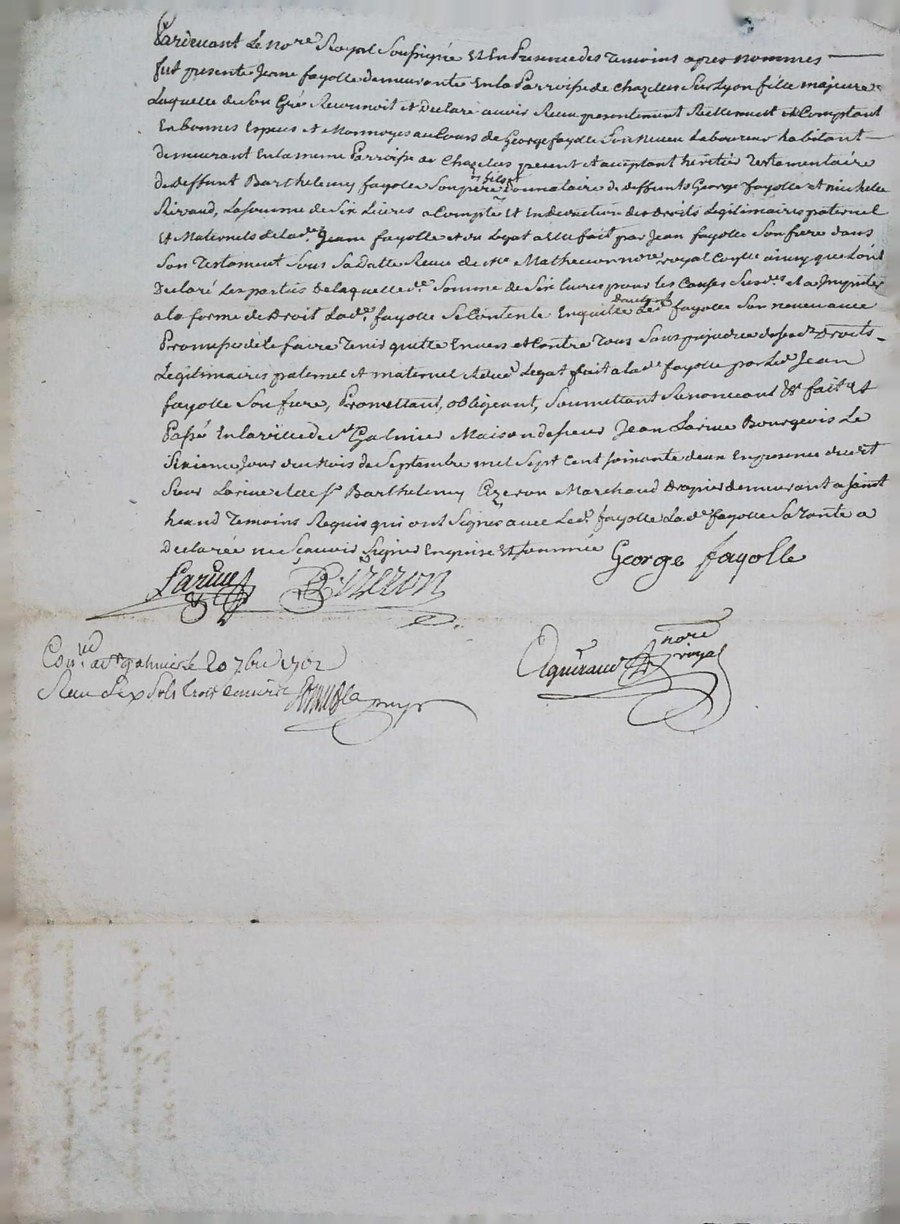 Pardevant Le nore Royal Soussigné Et En Presence des Temoins apres nommes
fut presente Jeane fayolle demeurante En la Parroisse de Chazelles Sur Lyon fille majeure
Laquelle de Son Gré Reconnoit et Declare avoir Receu presentement Reellement et Comptant
En bonnes Especes et Monnoyes au Cours de George fayolle Son Neveu Laboureur habitant
demeurant En la meme Parroisse de Chazelles present et acceptant heritier Testamentaire
de deffunt Barthelemy fayolle Son pere Donnataire de deffunts George fayolle et michelle
Rivaud, La Somme de Six Livres a Compte Et En deduction des Droits Legitimaires paternel
Et Maternels de lade Jeane fayolle et du Legat a Elle fait par Jean fayolle Son frere dans
Son Testament Sous Sa Datte Receu de Me Mathevon nore royal ainsy que L'ont
Declaré Les parties De laquelle de Somme de Six Livres pour les Causes Susdes et a Imputer
a la forme de Droit Lade fayolle Se Contente En quitte Led fayolle Son neveu avec
Promesse de le faire Tenir quitte Envers et Contre Tous Sans prejudice de Sesd Droits
Legitimaires paternel et maternel et dud Legat fait a lade fayolle par led Jean
fayolle Son frere, Promettant, obligeant, Soumettant Renonceant &c fait et
Passé En la ville de St Galmier Maison de Sieur Jean Larive Bourgeois Le
Jour du Mois de Septembre mil Sept Cent Soixante deux En presence dudit
Sieur Larive et de Sr Barthelemy Ezeron Marchand Drapier demeurant a Saint
heand Temoins Requis qui ont Signé avec Led fayolle Lade fayolle Sa Tante a
Declarée ne Scavoir Signer Enquise Et Sommée George fayolle
Larive B. Ezeron
nore
royal
Conlé a St galmier le 20 7bre 1762
Receu Six Sols